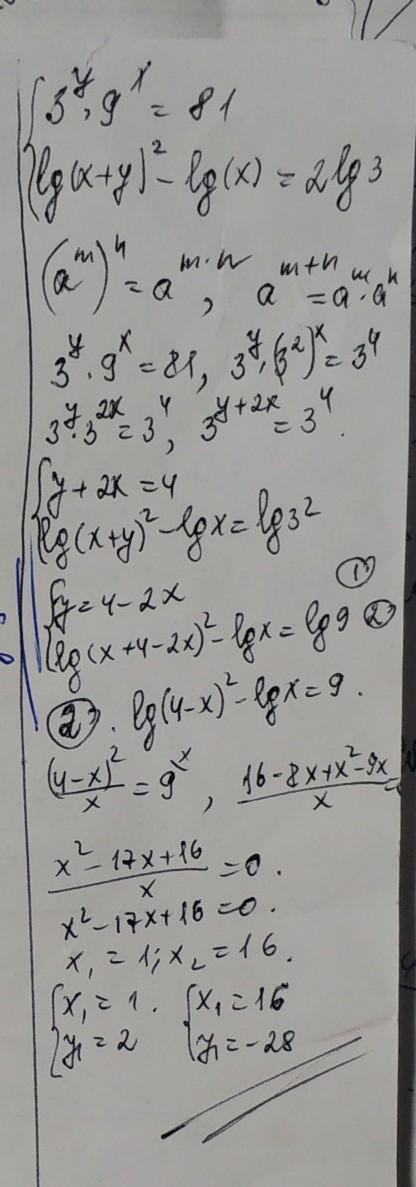 {3^y · 9^x = 81
{lg(x+y)^2 - lg(x) = 2lg3
(a^m)^n = a^{m·n}, a^{m+n} = a^m · a^n
3^y · 9^x = 81, 3^y · (3^2)^x = 3^4
3^y · 3^{2x} = 3^4, 3^{y+2x} = 3^4.
{y + 2x = 4
{lg(x+y)^2 - lgx = lg3^2
{y = 4 - 2x ①
{lg(x+4-2x)^2 - lgx = lg9 ②
②. lg(4-x)^2 - lgx = 9.
(4-x)^2/x = 9^{x}, (16-8x+x^2-9x)/x =
(x^2-17x+16)/x = 0.
x^2-17x+16 = 0.
x_1 = 1; x_2 = 16.
{x_1 = 1. {x_1 = 16
{y_1 = 2 {y_1 = -28